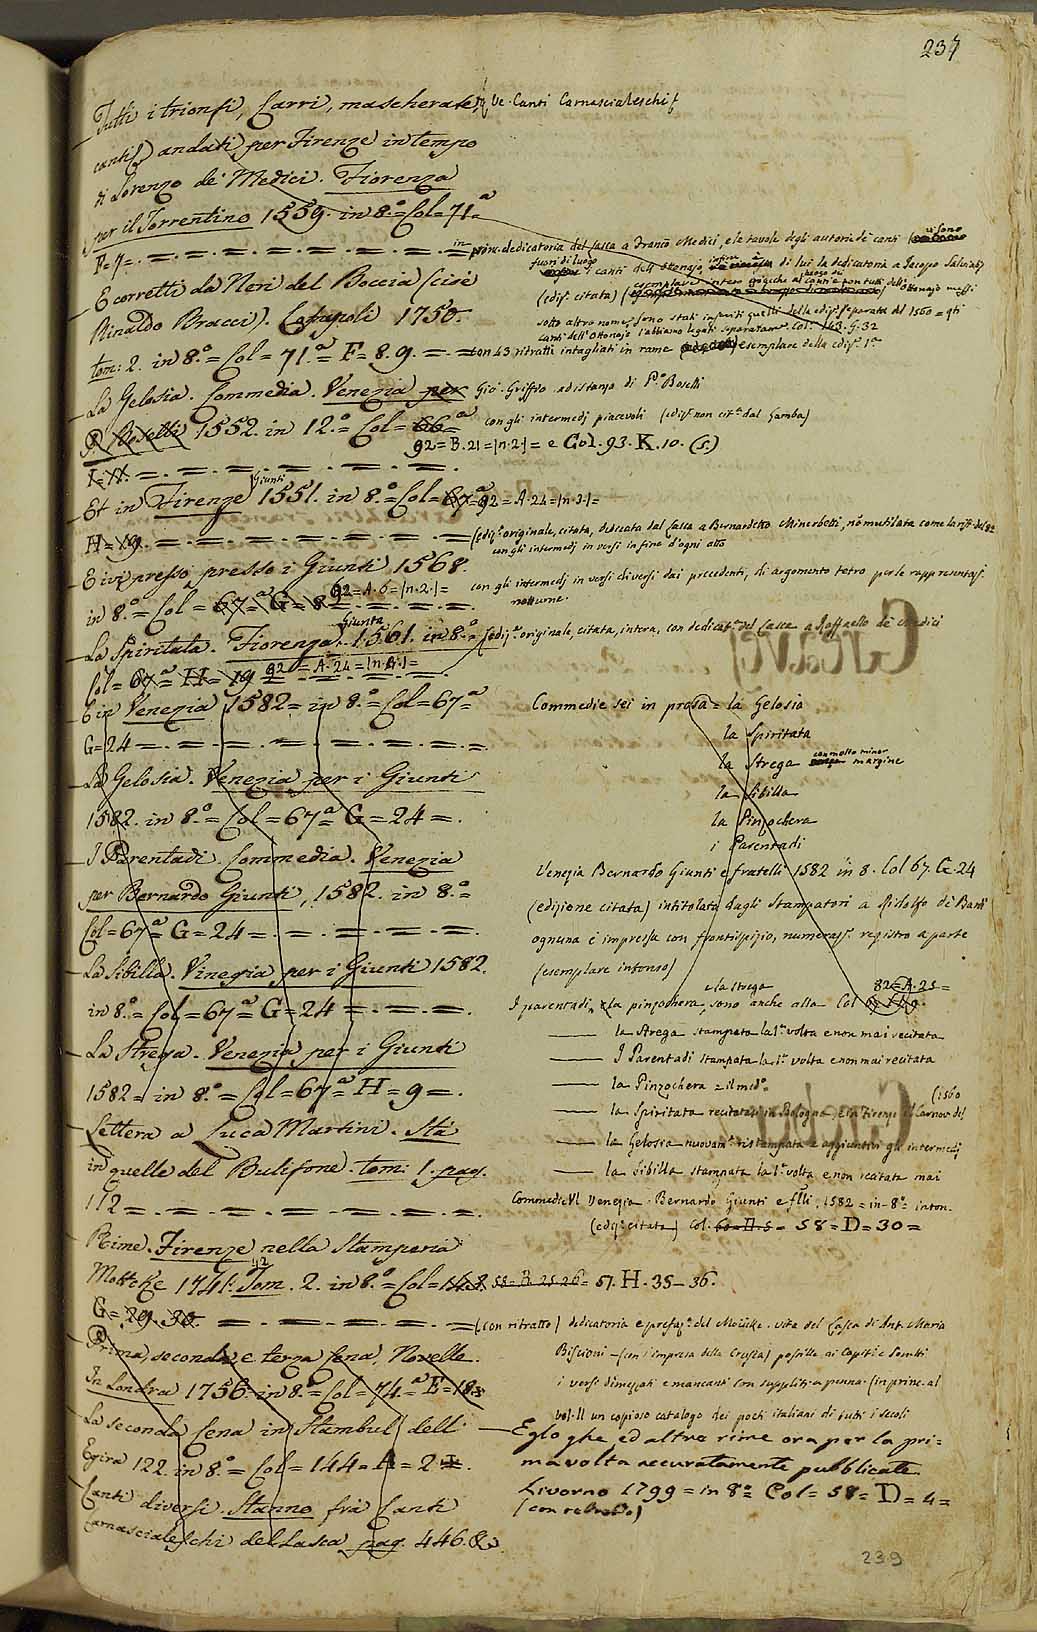 237
Tutti i trionfi, Carri, mascherate, Ve. Canti Carnascialeschi
canti andati per Firenze in tempo
di Lorenzo de' Medici. Fiorenza
per il Torrentino 1559. in 8.º = Col = 71.ª
F = 7 = . in princ. dedicatoria del Lasca a Franco Medici, e la tavola degli autori de' canti (vi sono
fuori di luogo i canti dell'Ottonajo di lui la dedicatoria a Jacopo Salviati)
E corretti da Neri del Boccia (cioè
(ediz. citata)
Rinaldo Bracci). Cosmopoli 1750.
sotto altro nome, sono stati inseriti quelli della ediz. separata del 1560 = qti
canti dell'Ottonajo l'abbiamo legati separatam.e Col. 143. G. 32
tom: 2. in 8.º = Col = 71.ª F = 8. 9. = con 43 ritratti intagliati in rame esemplare della ediz. 1.ª
La Gelosia. Commedia. Venezia per Gio. Griffio ad istanza di P.º Boselli
P. Boselli 1552. in 12.º = Col = 66.ª = con gli intermedj piacevoli (ediz. non cit.ª dal Gamba)
92 = B. 21 = |n. 2.| = e Col. 93. K. 10. (s.)
I = 11. = .
Et in Firenze Giunti 1551. in 8.º = Col = 67.ª 92 = A. 24 = |n. 3.| =
H = 19. = (ediz.e originale, citata, dedicata dal Lasca a Bernardetto Minerbetti, nõ mutilata come la rist. del 82
con gli intermedj in versi in fine d'ogni atto
E ivi presso presso i Giunti 1568.
in 8.º = Col = 67.ª G = 8. 92 = A. 6 = |n. 2.| = con gli intermedj in versi diversi dai precedenti, di argomento tetro per le rappresentaz.
notturne.
La Spiritata. Fiorenza. Giunta 1561. in 8.º = (ediz.e originale, citata, intera, con dedicat.ª del Lasca a Raffaello de' Medici
Col = 67.ª = H = 19 92 = A. 24 = |n. 4.| =
E in Venezia 1582 = in 8.º = Col = 67.ª
G = 24 = .
La Gelosia. Venezia per i Giunti
1582. in 8.º = Col = 67.ª G = 24 = .
I Parentadi. Commedia. Venezia
per Bernardo Giunti, 1582. in 8.º =
Col = 67.ª G = 24 = .
La Sibilla. Vinegia per i Giunti 1582.
in 8.º = Col = 67.ª G = 24 = .
La Strega. Venezia per i Giunti
1582 = in 8.º = Col = 67.ª H = 9 = .
Lettera a Luca Martini. Sta
in quelle del Bulifone. tom: 1. pag.
112 = .
Commedie sei in prosa = la Gelosia
la Spiritata
la Strega con molto minor margine
la Sibilla
la Pinzochera
i Parentadi
Venezia Bernardo Giunti e fratelli 1582 in 8. Col 67. G. 24
(edizione citata) intitolata dagli Stampatori a Ridolfo de' Bardi
ognuna è impressa con frontispizio, numeraz. registro a parte
(esemplare intonso)
e la strega 82 = A. 25 =
I parentadi, e la pinzochera, sono anche alla Col
la Strega stampata la 1.ª volta e non mai recitata
I Parentadi stampata la 1.ª volta e non mai recitata
la Pinzochera = il med.º
la Spiritata recitatasi in Bologna e in Firenze il Carnov. del (1560
la Gelosia nuovam.e ristampata e aggiuntivi gli intermedj
la Sibilla stampata la 1.ª volta e non recitata mai
Commedie VI Venezia. Bernardo Giunti e flli. 1582 = in-8.º = inton.
(ediz.e citata) Col. 60 = H. 5 = 58 = D = 30 =
Rime. Firenze nella Stamperia
Moücke 1741.42 Tom. 2. in 8.º = Col = 148. 58 = B. 25 26 = 57. H. 35 - 36.
G = 29. 30. = (con ritratto) dedicatoria e prefaz.e del Moücke. vita del Lasca di Ant. Maria
Biscioni - (con l'impresa della Crusca) postille ai Capit.i e Sonetti
i versi dimezzati e mancanti con suppliti a penna. (in princ. al
vol. II un copioso catalogo dei poeti italiani di tutti i secoli
Prima, seconda e terza Cena, Novelle.
In Londra 1756. in 8.º = Col = 74.ª E = 18.
La seconda Cena in Stambul dell'
Egira 122. in 8.º = Col = 144 = A = 2
Canti diversi. Stanno fra' Canti
Carnascialeschi del Lasca pag. 446. &.
Egloghe ed altre rime ora per la pri=
ma volta accuratamente pubblicate.
Livorno 1799 = in 8.º = Col = 58 = D = 4 =
(con retratto)
239